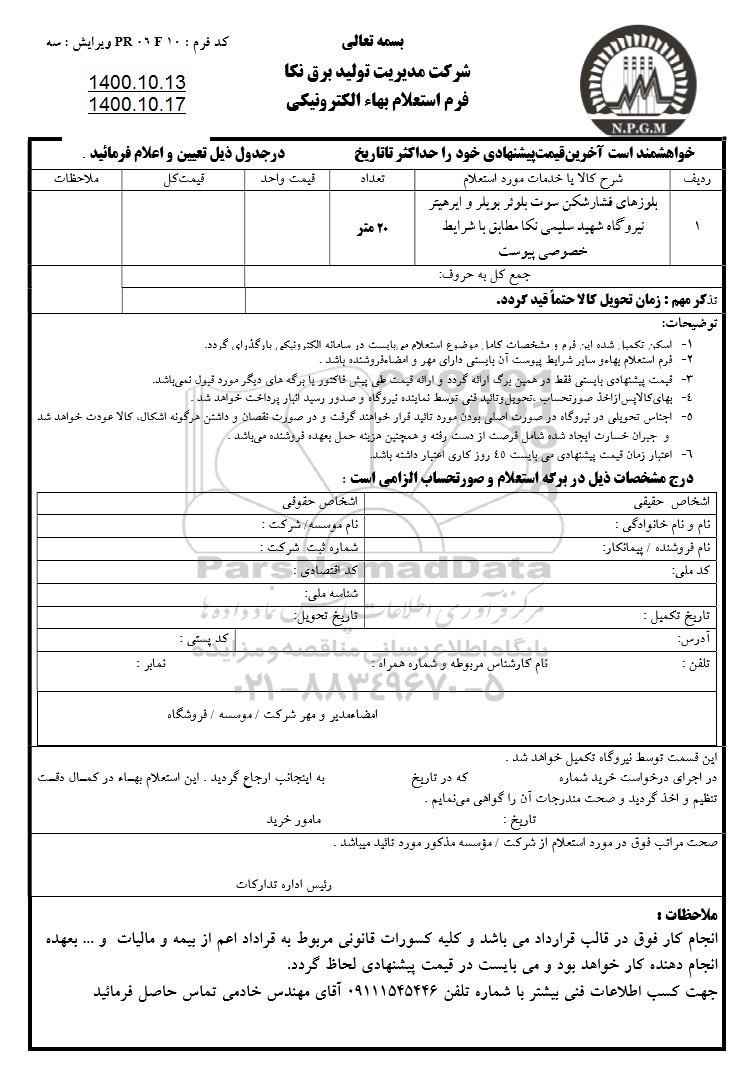 بسمه تعالی
کد فرم : PR 06 F 10 ویرایش : سه
شرکت مدیریت تولید برق نکا
فرم استعلام بهاء الکترونیکی
1400.10.13
1400.10.17
N.P.G.M
خواهشمند است آخرین قیمت‌پیشنهادی خود را حداکثر تاتاریخ درجدول ذیل تعیین و اعلام فرمائید .
ردیف شرح کالا یا خدمات مورد استعلام تعداد قیمت واحد قیمت‌کل ملاحظات
بلوزهای فشارشکن سوت بلوئر بویلر و ایرهیتر
۱ نیروگاه شهید سلیمی نکا مطابق با شرایط ۲۰ متر
خصوصی پیوست
جمع کل به حروف:
تذکر مهم : زمان تحویل کالا حتماً قید گردد.
توضیحات:
۱- اسکن تکمیل شده این فرم و مشخصات کامل موضوع استعلام می‌بایست در سامانه الکترونیکی بارگذرای گردد.
۲- فرم استعلام بهاءو سایر شرایط پیوست آن بایستی دارای مهر و امضاءفروشنده باشد .
۳- قیمت پیشنهادی بایستی فقط در همین برگ ارائه گردد و ارائه قیمت طی پیش فاکتور یا برگه های دیگر مورد قبول نمی‌باشد.
۴- بهای‌کالاپس‌ازاخذ صورتحساب ،تحویل‌وتائید فنی توسط نماینده نیروگاه و صدور رسید انبار پرداخت خواهد شد .
۵- اجناس تحویلی در نیروگاه در صورت اصلی بودن مورد تائید قرار خواهند گرفت و در صورت نقصان و داشتن هرگونه اشکال، کالا عودت خواهد شد
و جبران خسارت ایجاد شده شامل فرصت از دست رفته و همچنین هزینه حمل بعهده فروشنده می‌باشد .
۶- اعتبار زمان قیمت پیشنهادی می بایست ٤٥ روز کاری اعتبار داشته باشد.
درج مشخصات ذیل در برگه استعلام و صورتحساب الزامی است :
اشخاص حقیقی اشخاص حقوقی
نام و نام خانوادگی : نام موسسه/ شرکت :
نام فروشنده / پیمانکار: شماره ثبت شرکت :
کد ملی: کد اقتصادی :
شناسه ملی:
تاریخ تکمیل : تاریخ تحویل:
آدرس: کد پستی :
تلفن : نام کارشناس مربوطه و شماره همراه : نمابر :
امضاءمدیر و مهر شرکت / موسسه / فروشگاه
ParsNamadData
مرکز فرآوری اطلاعات پارس نماد داده ها
پایگاه اطلاع رسانی مناقصه و مزایده
۰۲۱-۸۸۳۴۹۶۷۰-۵
این قسمت توسط نیروگاه تکمیل خواهد شد .
در اجرای درخواست خرید شماره که در تاریخ به اینجانب ارجاع گردید . این استعلام بهاء در کمال دقت
تنظیم و اخذ گردید و صحت مندرجات آن را گواهی می‌نمایم .
تاریخ : مامور خرید
صحت مراتب فوق در مورد استعلام از شرکت / مؤسسه مذکور مورد تائید میباشد .
رئیس اداره تدارکات
ملاحظات :
انجام کار فوق در قالب قرارداد می باشد و کلیه کسورات قانونی مربوط به قراداد اعم از بیمه و مالیات و ... بعهده
انجام دهنده کار خواهد بود و می بایست در قیمت پیشنهادی لحاظ گردد.
جهت کسب اطلاعات فنی بیشتر با شماره تلفن ۰۹۱۱۱۵۴۵۴۴۶ آقای مهندس خادمی تماس حاصل فرمائید